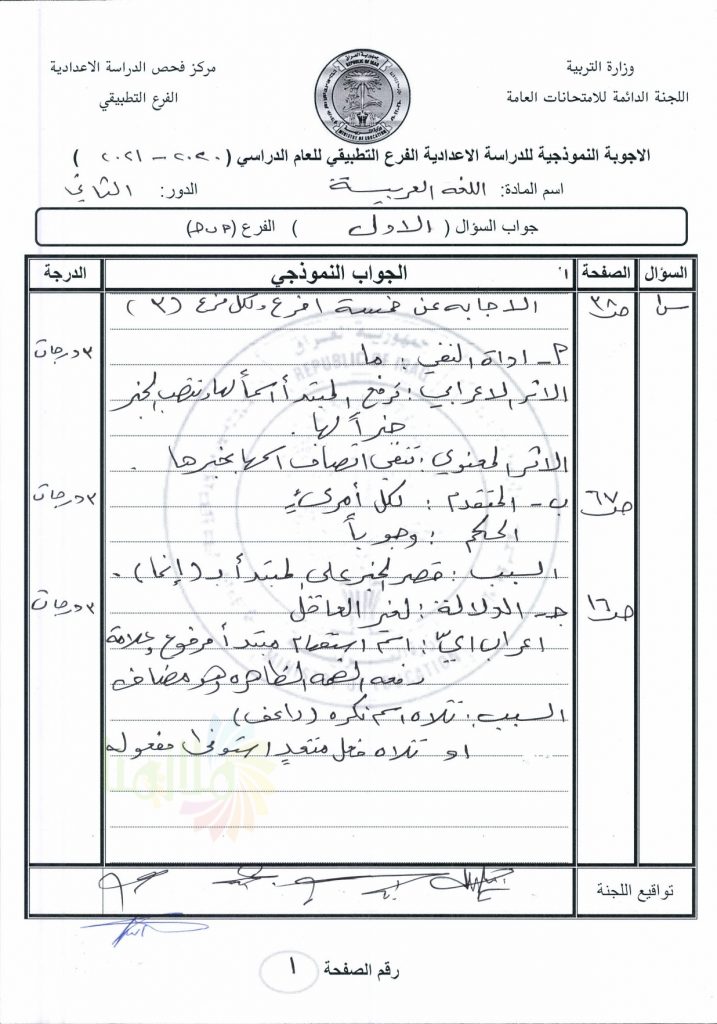 وزارة التربية
اللجنة الدائمة للامتحانات العامة
جمهورية العراق
REPUBLIC OF IRAQ
MINISTRY OF EDUCATION
مركز فحص الدراسة الاعدادية
الفرع التطبيقي
الاجوبة النموذجية للدراسة الاعدادية الفرع التطبيقي للعام الدراسي ( ٢٠٢٠ – ٢٠٢١ )
اسم المادة: اللغة العربية الدور: الثاني
جواب السؤال ( الاول ) الفرع
السؤال الصفحة الجواب النموذجي الدرجة
س١ ص٣٨ الاجابة عن خمسة افرع ولكل فرع (٣)
٣ درجات
أ- اداة النفي : ما
الاثر الاعرابي : ترفع المبتدأ اسماً لها وتنصب الخبر
خبراً لها .
الاثر المعنوي : تنفي اتصاف اسمها بخبرها .
ص٦٧ ب- المتقدم : لكل أمرئٍ ٣ درجات
الحكم : وجوباً
السبب : قصر الخبر على المبتدأ بـ (إنما) .
ص١٦ جـ- الدلالة : لغير العاقل ٣ درجات
اعراب ايّ : اسم استفهام مبتدأ مرفوع وعلامة
رفعه الضمة الظاهره وهو مضاف
السبب : تلاه اسم نكره
او تلاه فعل متعدٍ استوفى مفعوله
تواقيع اللجنة
رقم الصفحة ١